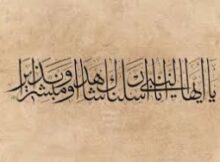 يا أيها النبي إنا أرسلناك شاهدا ومبشرا ونذيرا